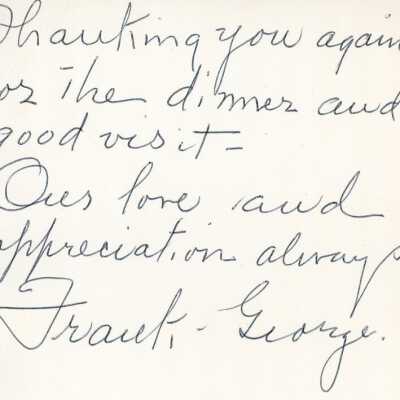 Thanking you again
for The dinner and
good visit -
Our love and
appreciation always
Frank, - George.